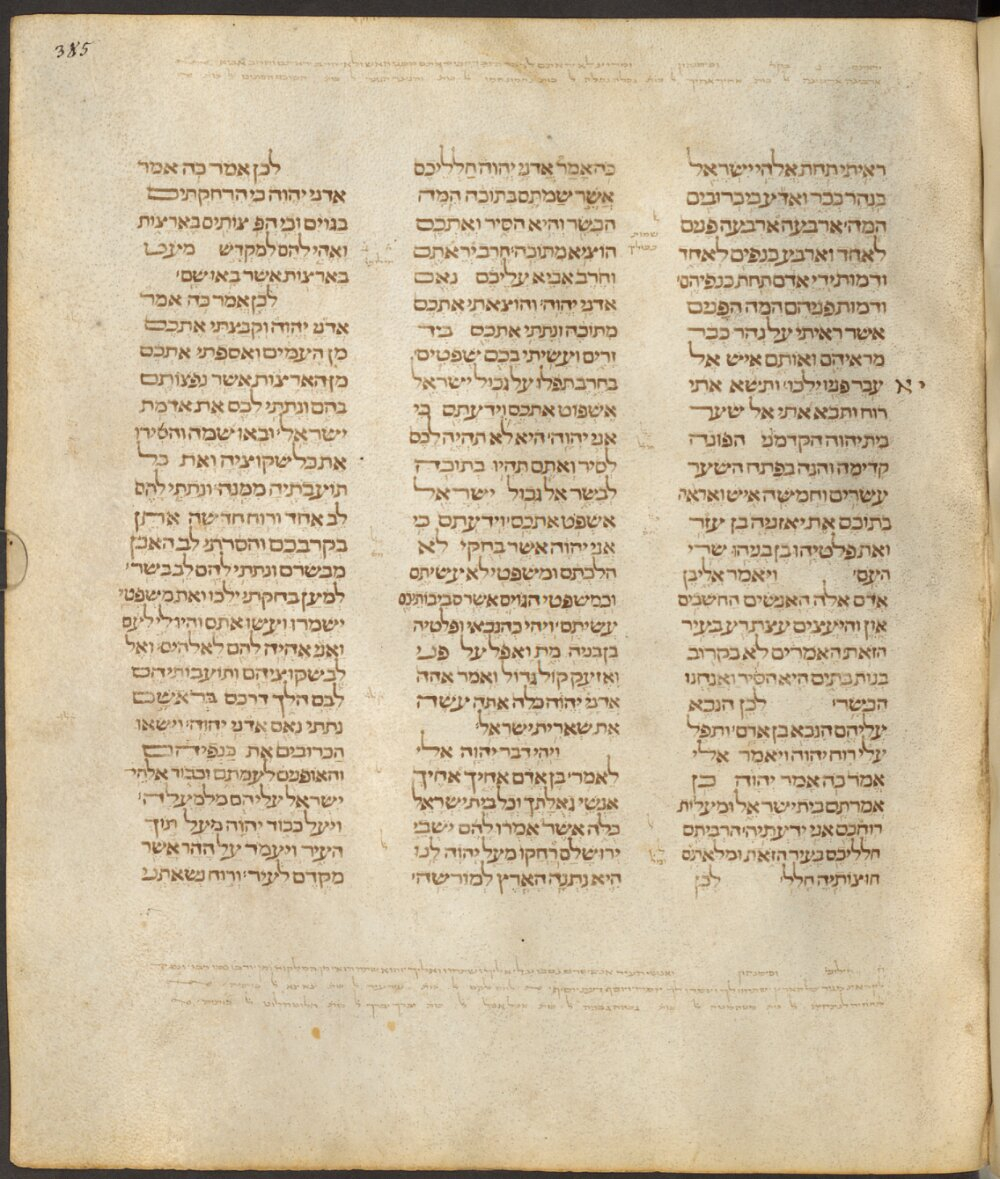 385
ראיתי תחת אלהי ישראל
בנהר כבר ואדע כי כרובים
המה׃ ארבעה ארבעה פנים
לאחד וארבע כנפים לאחד
ודמות ידי אדם תחת כנפיהם׃
ודמות פניהם המה הפנים
אשר ראיתי על נהר כבר
מראיהם ואותם איש אל
יא
עבר פניו ילכו׃ ותשא אתי
רוח ותבא אתי אל שער
בית יהוה הקדמוני הפונה
קדימה והנה בפתח השער
עשרים וחמשה איש ואראה
בתוכם את יאזניה בן עזר
ואת פלטיהו בן בניהו שרי
העם׃ ויאמר אלי בן
אדם אלה האנשים החשבים
און והיעצים עצת רע בעיר
הזאת׃ האמרים לא בקרוב
בנות בתים היא הסיר ואנחנו
הבשר׃ לכן הנבא
עליהם הנבא בן אדם׃ ותפל
עלי רוח יהוה ויאמר אלי
אמר כה אמר יהוה כן
אמרתם בית ישראל ומעלות
רוחכם אני ידעתיה׃ הרביתם
חלליכם בעיר הזאת ומלאתם
חוצותיה חלל׃ לכן
כה אמר אדני יהוה חלליכם
אשר שמתם בתוכה המה
הבשר והיא הסיר ואתכם
הוציא מתוכה׃ חרב יראתם
וחרב אביא עליכם נאם
אדני יהוה׃ והוצאתי אתכם
מתוכה ונתתי אתכם ביד
זרים ועשיתי בכם שפטים׃
בחרב תפלו על גבול ישראל
אשפוט אתכם וידעתם כי
אני יהוה׃ היא לא תהיה לכם
לסיר ואתם תהיו בתוכה
לבשר אל גבול ישראל
אשפט אתכם׃ וידעתם כי
אני יהוה אשר בחקי לא
הלכתם ומשפטי לא עשיתם
וכמשפטי הגוים אשר סביבותיכם
עשיתם׃ ויהי כהנבאי ופלטיהו
בן בניה מת ואפל על פני
ואזעק קול גדול ואמר אהה
אדני יהוה כלה אתה עשה
את שארית ישראל׃
ויהי דבר יהוה אלי
לאמר׃ בן אדם אחיך אחיך
אנשי גאלתך וכל בית ישראל
כלה אשר אמרו להם ישבי
ירושלם רחקו מעל יהוה לנו
היא נתנה הארץ למורשה׃
לכן אמר כה אמר
אדני יהוה כי הרחקתים
בגוים וכי הפיצותים בארצות
ואהי להם למקדש מעט
בארצות אשר באו שם׃
לכן אמר כה אמר
אדני יהוה וקבצתי אתכם
מן העמים ואספתי אתכם
מן הארצות אשר נפצותם
בהם ונתתי לכם את אדמת
ישראל׃ ובאו שמה והסירו
את כל שקוציה ואת כל
תועבתיה ממנה׃ ונתתי להם
לב אחד ורוח חדשה אתן
בקרבכם והסרתי לב האבן
מבשרם ונתתי להם לב בשר׃
למען בחקתי ילכו ואת משפטי
ישמרו ועשו אתם והיו לי לעם
ואני אהיה להם לאלהים׃ ואל
לב שקוציהם ותועבותיהם
לבם הלך דרכם בראשם
נתתי נאם אדני יהוה׃ וישאו
הכרובים את כנפיהם
והאופנים לעמתם וכבוד אלהי
ישראל עליהם מלמעלה׃
ויעל כבוד יהוה מעל תוך
העיר ויעמד על ההר אשר
מקדם לעיר׃ ורוח נשאתני